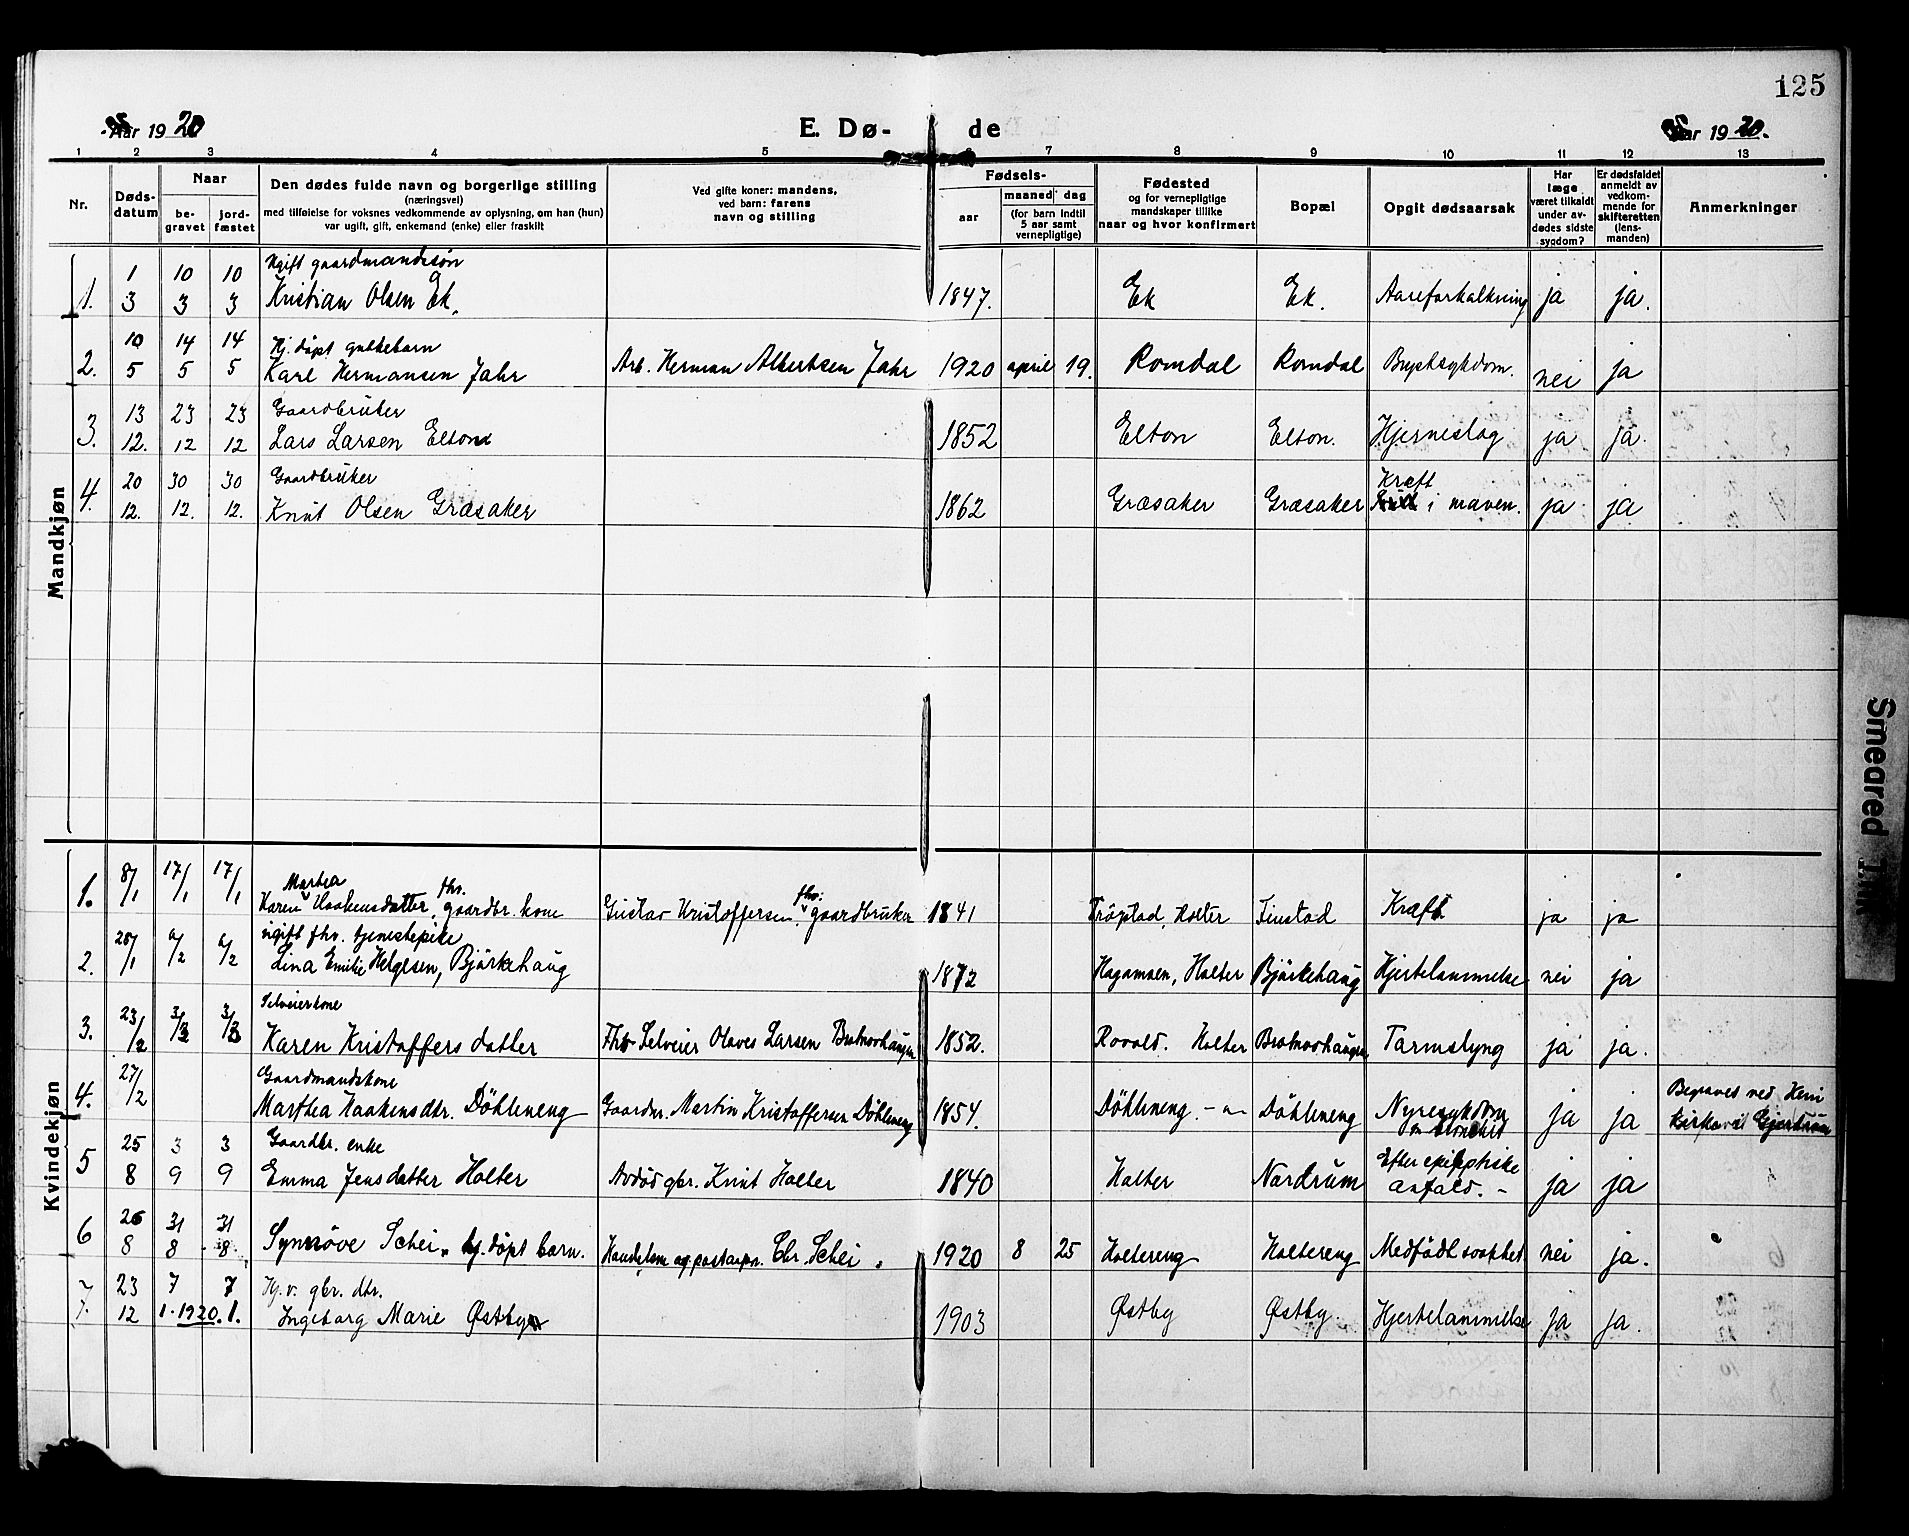 125
Aar 1920
E. Dø-
de
Aar 1920.
1 2 3 4 5 6 7 8 9 10 11 12 13
Nr.
Døds-
datum
Naar
be-
gravet
jord-
fæstet
Den dødes fulde navn og borgerlige stilling
(næringsvei)
med tilføielse for voksnes vedkommende av oplysning, om han (hun)
var ugift, gift, enkemand (enke) eller fraskilt
Ved gifte koner: mandens,
ved barn: farens
navn og stilling
Fødsels-
aar
maaned dag
(for barn indtil
5 aar samt
vernepligtige)
Fødested
og for vernepligtige
mandskaper tillike
naar og hvor konfirmert
Bopæl
Opgit dødsaarsak
Har
læge
været tilkaldt
under av-
dødes sidste
sygdom?
Er dødsfaldet
anmeldt av
vedkom-
mende for
skifteretten
(lens-
manden)
Anmerkninger
Mandkjøn
1 10 10 Ugift gaardmandssøn
1. 3 3 3 Kristian Olsen Ek. 1847. Ek Ek. Aareforkalkning ja ja.
10 14 14 Hj. døpt gutebarn
2. 5 5 5 Karl Hermansen Jahr Arb. Herman Albertsen Jahr 1920 april 19. Romdal Romdal Brystsykdom. nei ja
13 23 23 Gaardbruker
3. 12. 12 12 Lars Larsen Elton 1852 Elton Elton. Hjerneslag ja ja.
20 30 30 Gaardbruker Kræft
4. 12. 12. 12. Knut Olsen Græsaker 1862 Græsaker Græsaker i maven. ja ja
Kvindekjøn
8/1 17/1 17/1 Marthea fhv. fhv:
1. Karen Haakensdatter, gaardbr. kone Gustav Kristoffersen, gaardbruker 1841 Trøgstad, Holter Finstad Kræft ja ja
28/1 6/2 6/2 ugift fhv. tjenestepike
2. Lina Emilie Helgesen, Bjørkehaug 1872 Hagamoen, Holter Bjørkehaug Hjertelammelse nei ja
23/2 3/3 3/3 Selveierkone
3. Karen Kristoffersdatter Fhv Selveier Olaves Larsen Bratvoldhaugen 1852. Rovold. Holter Tarmslyng ja ja.
27/2 Gaardmandskone
4. Marthea Haakensdtr. Döhleneng Gaardm. Martin Kristoffersen Döhleneng 1854. Döhleneng. -"- Döhleneng Nyresykdom
og bronchit ja ja Begraves ved Heni
kirke Gjerdrum
25 3 3 Gaardbr. enke Efter epileptiske
5 8 9 9 Emma Jensdatter Holter Avdød gbr. Knut Holter 1840 Holter Nordrum anfald. - ja ja
26 31 31
6 8 8 8 Synnöve Schei. hj. döpt barn. Handelsm og postaapn. Chr. Schei. 1920 8 25 Holtereng Holtereng Medfödt svakhet nei ja.
23 7 7 Hj.v. gbr. dtr.
7. 12 1. 1920. 1. Ingeborg Marie Østby 1903 Østby Østby Hjertelammelse ja ja.
Smeared Ink